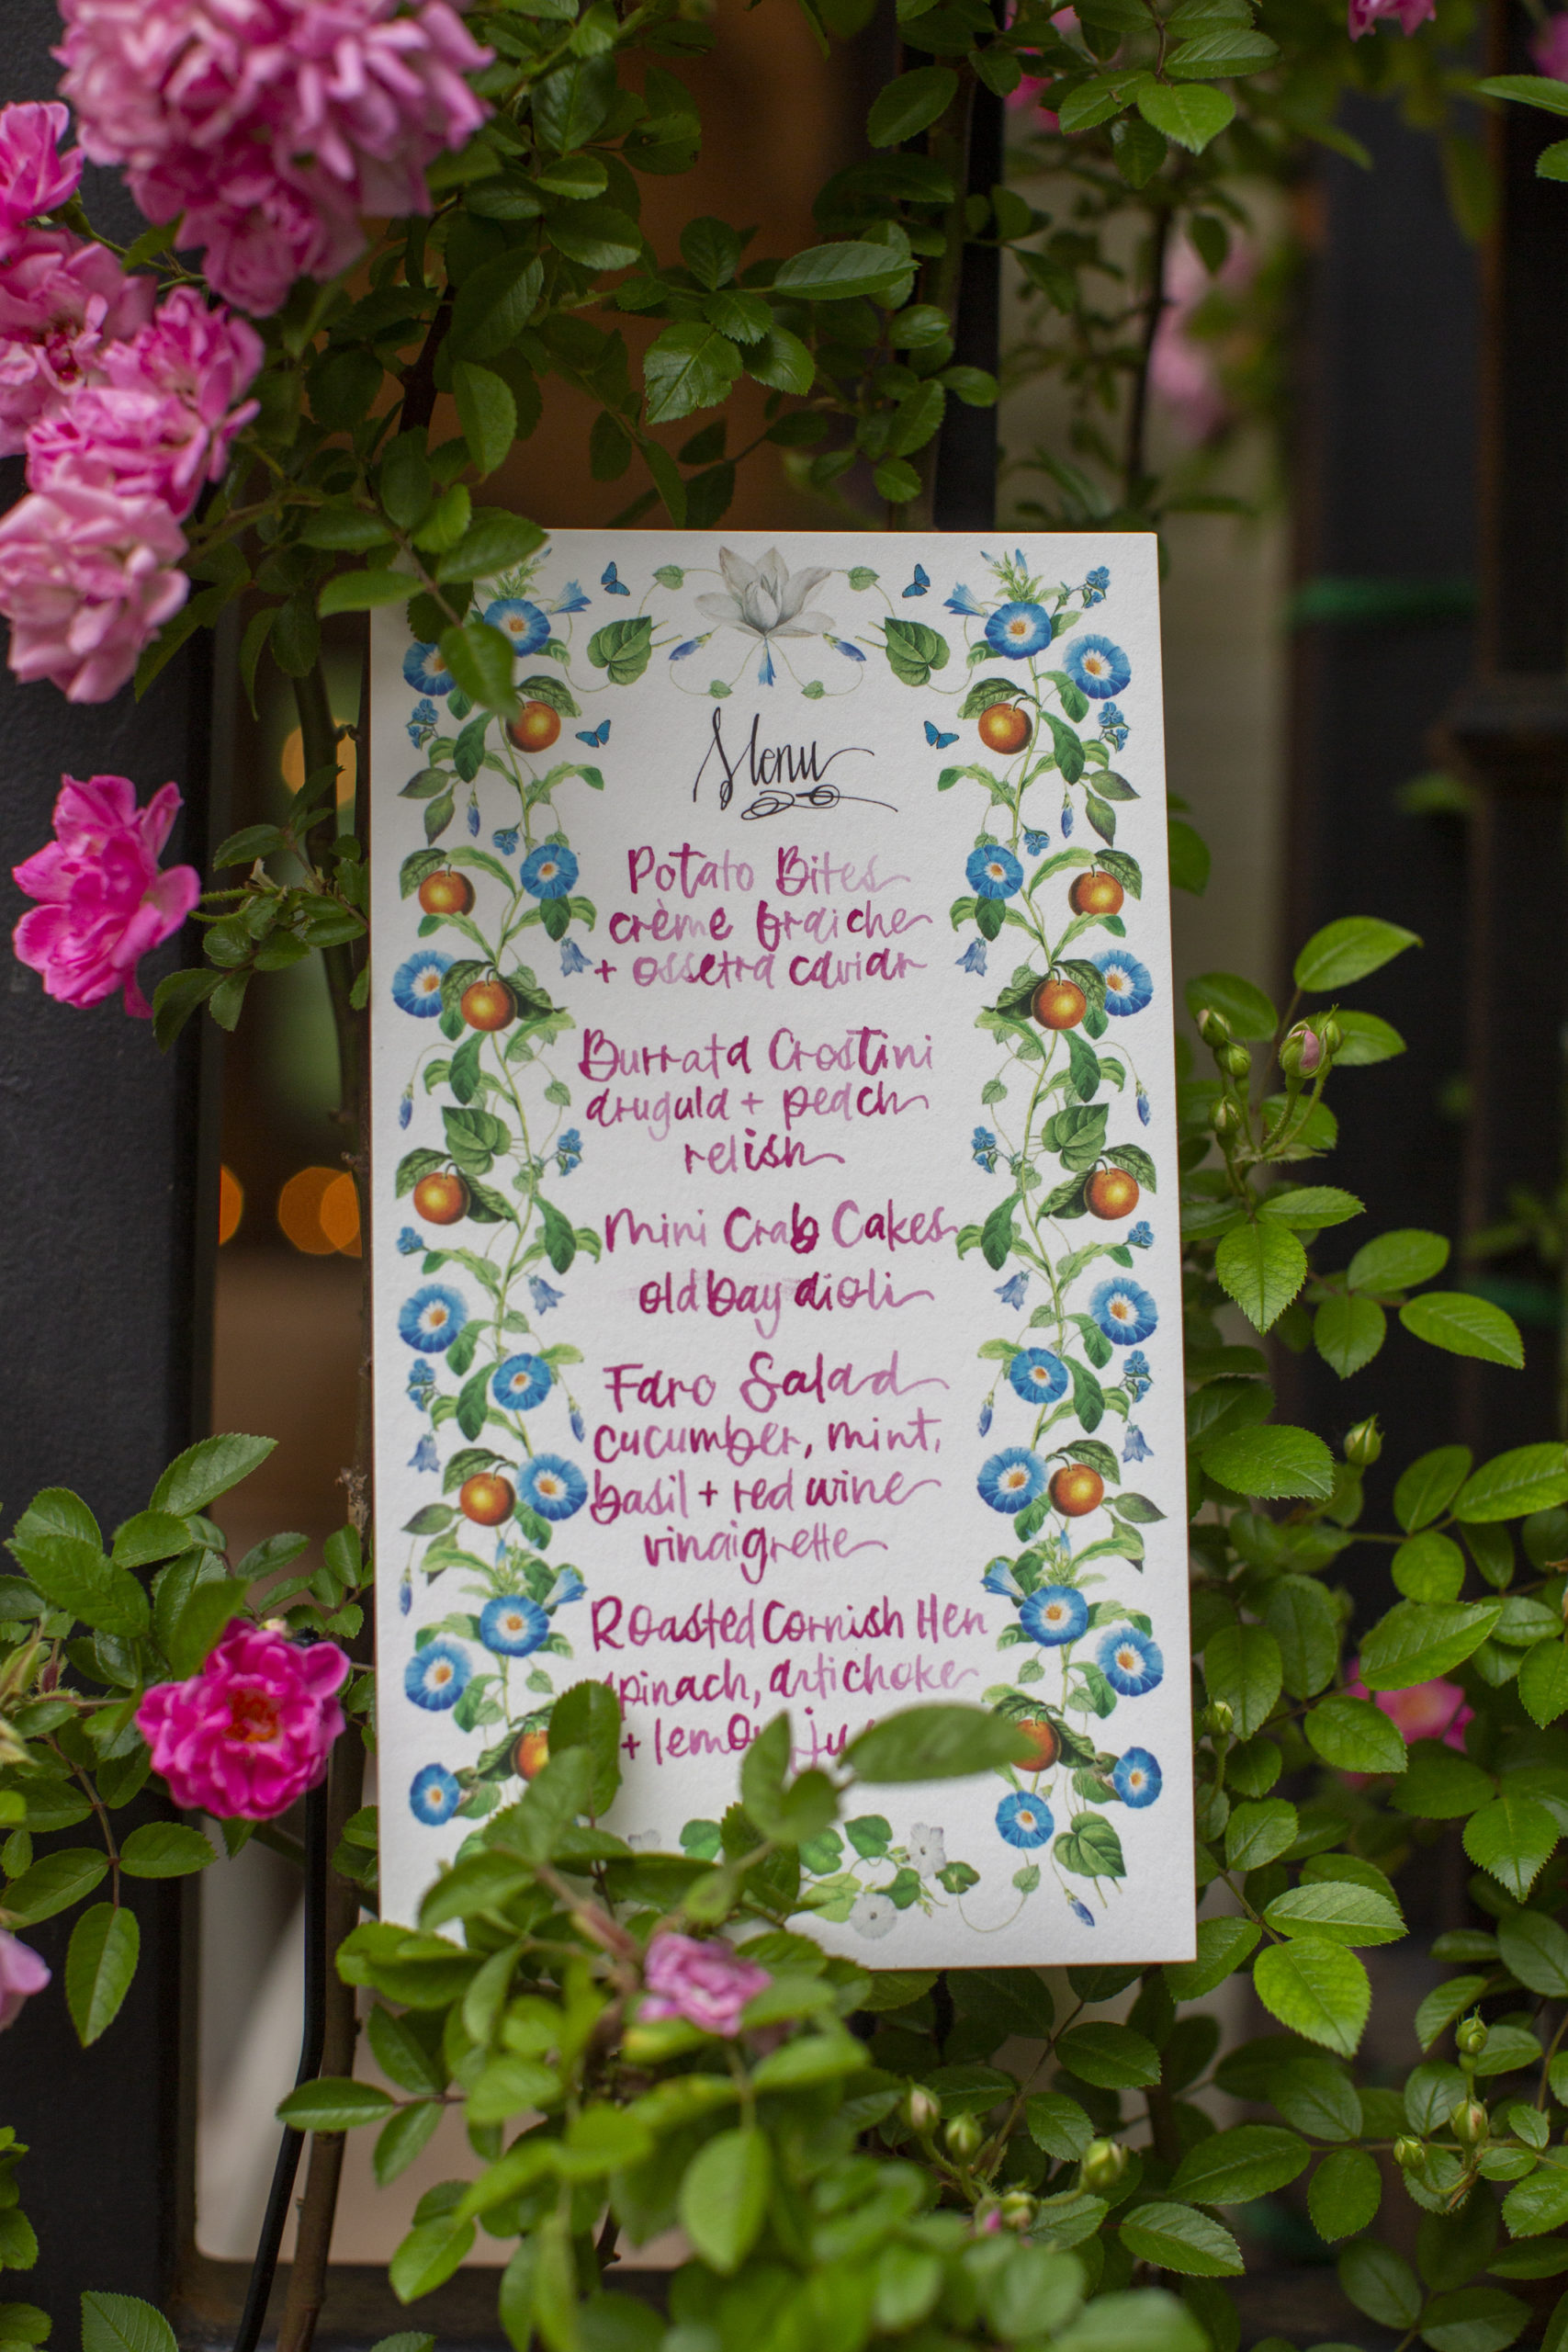 Menu
Potato Bites
crème fraiche
+ ossetra caviar
Burrata Crostini
arugula + peach
relish
Mini Crab Cakes
old bay aioli
Faro Salad
cucumber, mint,
basil + red wine
vinaigrette
Roasted Cornish Hen
spinach, artichoke
+ lemon